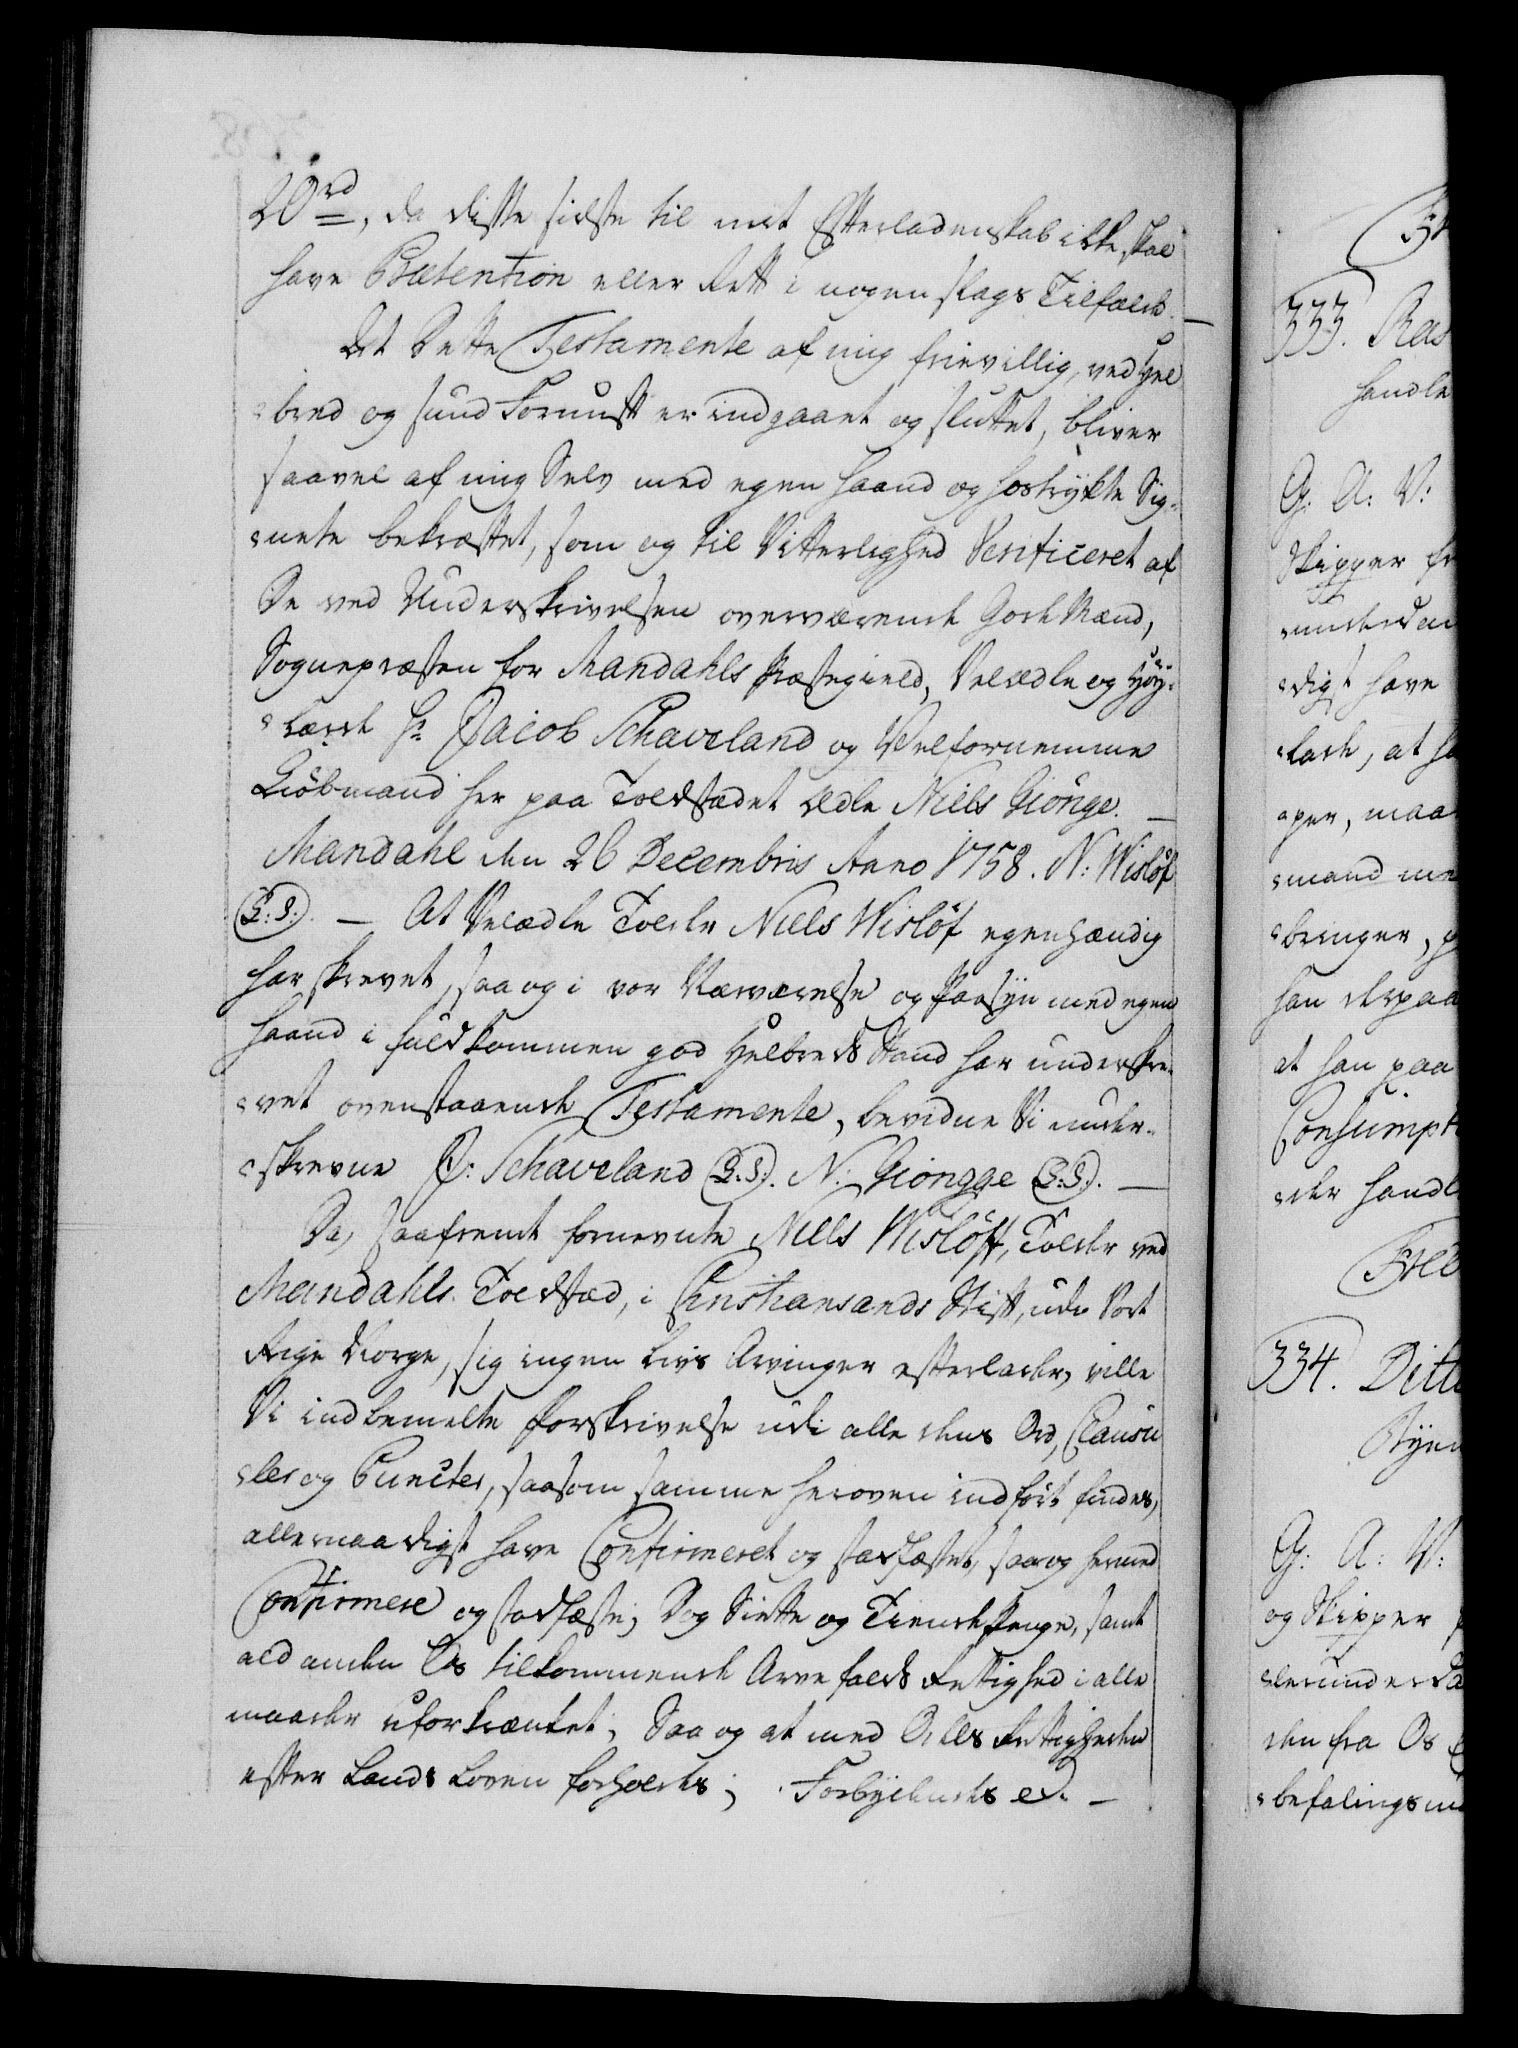 20 rd, da disse sidste til mit Efterladenskab ikke skal
have Prætention eller Rett i nogen slags Tilfælde. —
At Dette Testamente af mig frievillig, ved Hel
bred og sund Fornuft er indgaaet og sluttet, bliver
saavel af mig Selv med egen Haand og hostrykte Sig-
nete bekræftet, som og til Vitterlighed Verificeret af
De ved Underskrivelsen overværende Gode Mænd,
Sognepræsten for Mandahls Præstegield, Velædle og Høy-
lærde Hr. Jacob Schaveland og Velfornemme
Kiöbmand her paa Toldstædet Ædle Niels Giönge. —
Mandahl den 26 Decembris Anno 1758. N: Wislöf
(L: S:). — At Velædle Tolder Niels Wislöf egenhændig
har skrevet, saa og i vor Nærværelse og Paasyn med egen
Haand i fuldkommen god Helbreds Stand har underskre-
vet ovenstaaende Testamente, bevidne Vi under-
skrevne J: Schaveland (L:S:). N: Giöngge (L:S:). —
Da, saafremt fornevnte Niels Wislöff, Tolder ved
Mandahls Toldstæd, i Christiansands Stift, udi Vort
Rige Norge, sig ingen Livs Arvinger efterlader, ville
Vi indbemelte Forskrivelse udi alle dens Ord, Clausu
ler og Puncter, saasom samme heroven indfört findes,
allernaadigst have Confirmeret og stadfæstet, saa og hermed
Confirmere og stadfæste; Dog Siette og Tiende Penge, samt
ald anden Os tilkommende Arve falds Rettighed i alle
maader uforkrænket; Saa og at med Odels Rettigheden
efter Lands Loven forholdes; Forbydendes etc. —
333. Ras
handle
G: A: V:
Skipper fr
digst have
lade, at h
per, maa
mand me
bringer, p
han derpaa
at han paa
Consumpt
der handl
334. Ditt
G: A: V:
og Skipper
den fra Os
befalings m